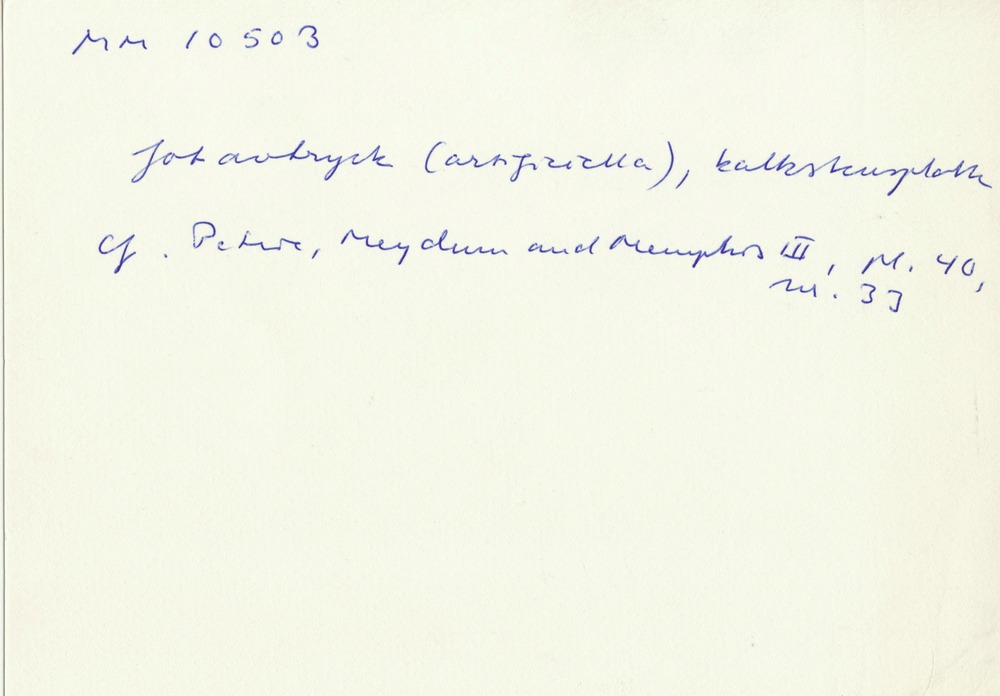 MM 10503
fotavtryck (artificiella), kalkstensplatta
Cf. Petrie, Meydum and Memphis III, pl. 40,
nr. 33